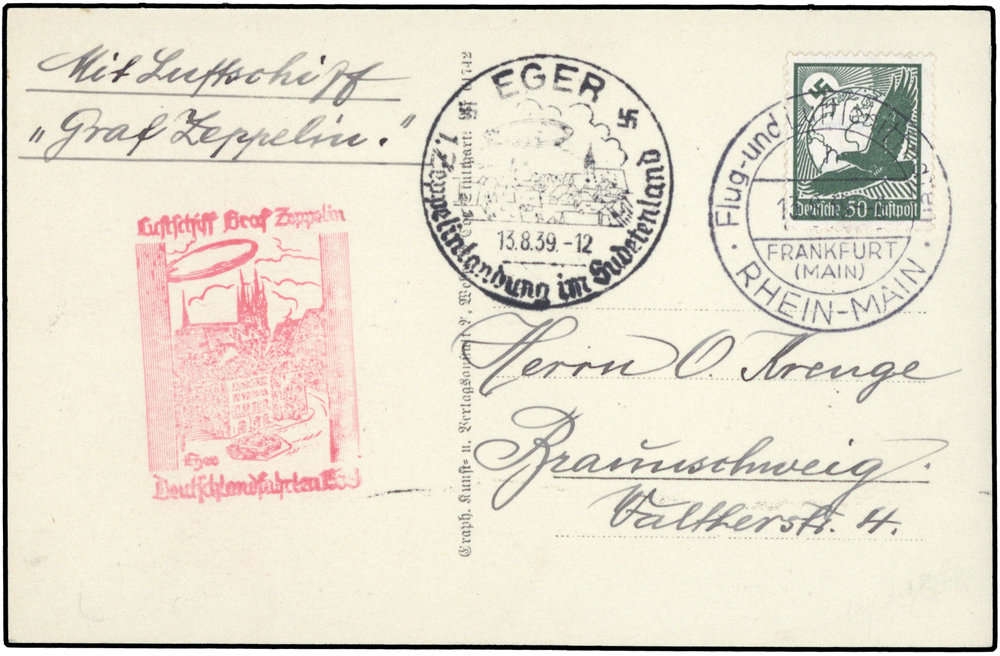 Mit Luftschiff
„Graf Zeppelin."
Luftschiff Graf Zeppelin
Eger
Deutschlandfahrten 1939
EGER
13.8.39.-12
1. Zeppelinlandung im Sudetenland
Deutsche 50 Luftpost
Flug- und
FRANKFURT
(MAIN)
RHEIN-MAIN
Graph. Kunst- u. Verlagsanstalt
Herrn O. Krenge
Braunschweig.
Waltherstr. 4.